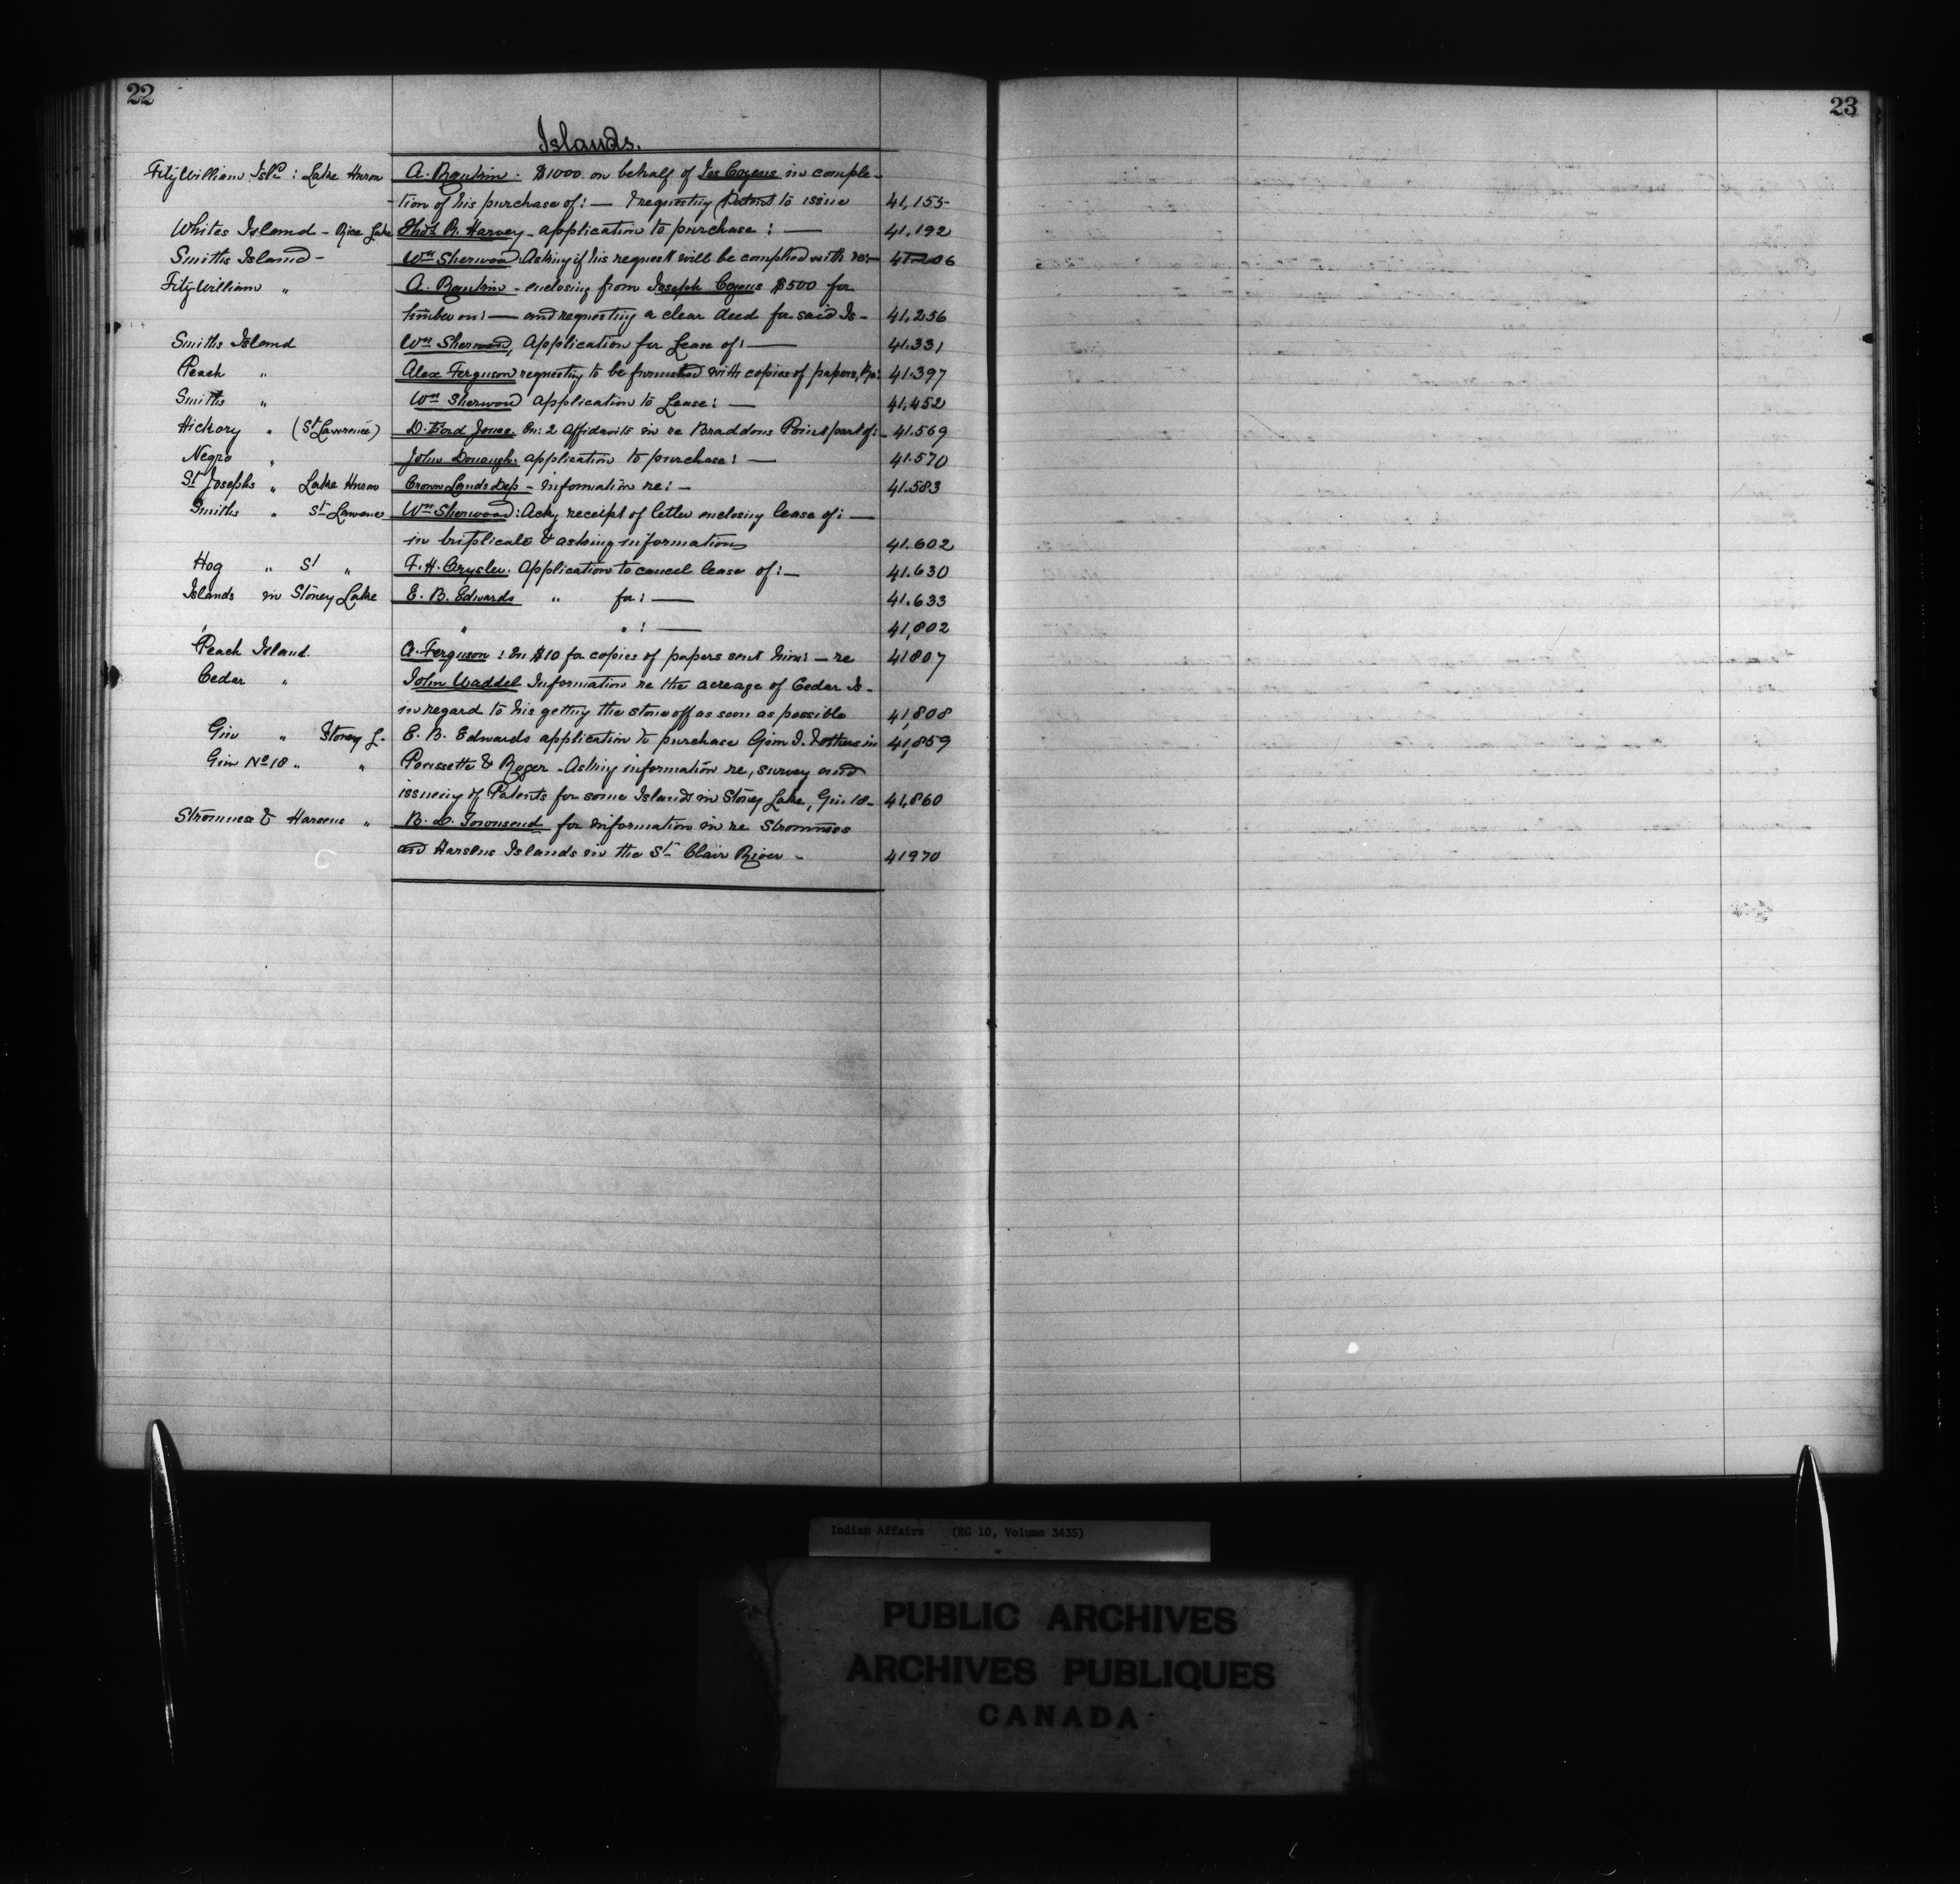 22
23
Islands.
FitzWilliam Isld : Lake Huron A. Rankin . $1000 on behalf of Jos Cozens in comple-
tion of his purchase of : — & requesting Patent to issue 41,155
Whites Island - Rice Lake Thos R. Harvey - application to purchase : — 41.192
Smiths Island - Wm Sherwood. Asking if his request will be complied with re: — 41206
FitzWilliam " A. Rankin - enclosing from Joseph Cozens $500 for
timber on : — and requesting a clear deed for said Is - 41.256
Smiths Island Wm Sherwood, Application for Lease of : — 41.331
Peach " Alex Ferguson requesting to be furnished with copies of papers, re: 41.397
Smiths " Wm Sherwood application to Lease : — 41.452
Hickory " (St Lawrence) D. Ford Jones. En: 2 Affidavits in re Braddons Point part of: - 41.569
Negro " John Donough. application to purchase : — 41.570
St Josephs " Lake Huron Crown Lands Dep - Information re : - 41.583
Smiths " St Lawrence Wm Sherwood : Ackg receipt of letter enclosing lease of : —
in triplicate & asking information 41.602
Hog " St " F. H. Crysler. Application to cancel lease of : — 41.630
Islands in Stoney Lake E. B. Edwards " for : — 41.633
" " : — 41,802
Peach Island. A. Ferguson : En $10 for copies of papers sent him : — re 41807
Cedar " John Waddel Information re the acreage of Cedar Is -
in regard to his getting the stone off as soon as possible 41,808
Gin " Stoney L. E. B. Edwards application to purchase Gin I. & others in 41,859
Gin No 18 " " Poussette & Roger - Asking information re, survey and
issuing of Patents for some Islands in Stoney Lake, Gin 18 - 41,860
Stromness & Harsens " B. D. Townsend for information in re Stromness
and Harsens Islands in the St. Clair River - 41970
Indian Affairs (RG 10, Volume 3435)
PUBLIC ARCHIVES
ARCHIVES PUBLIQUES
CANADA